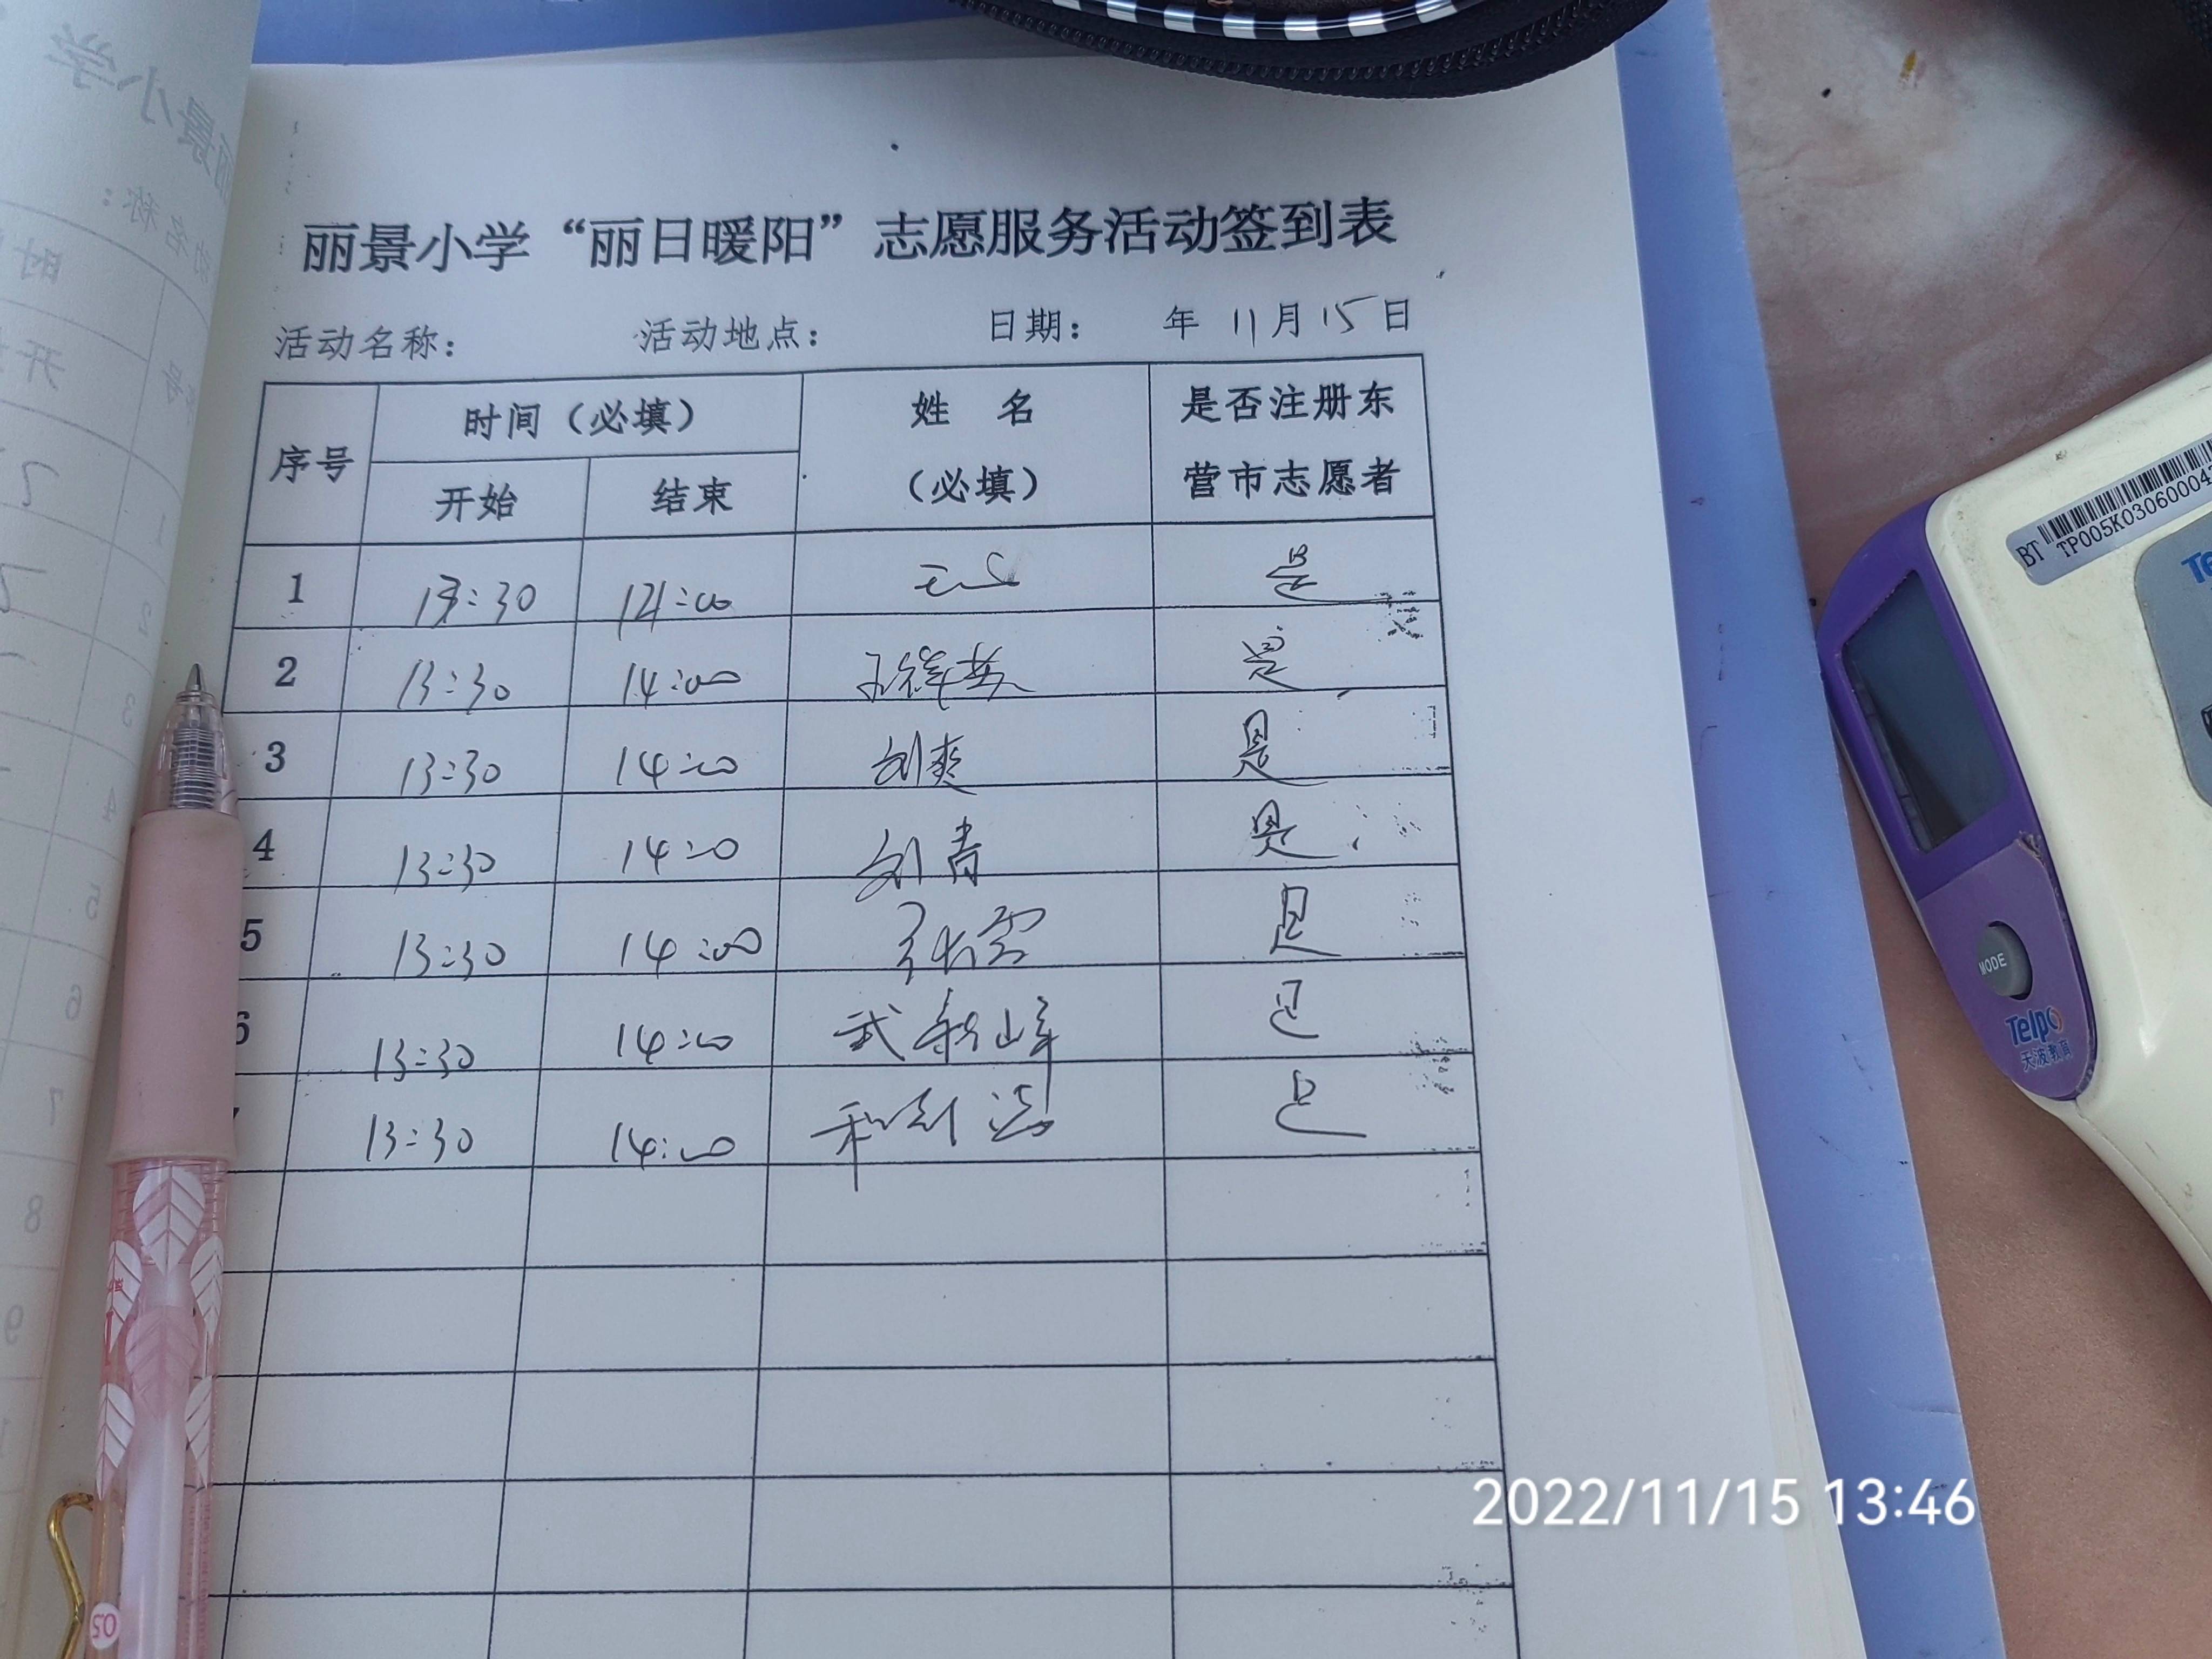 丽景小学“丽日暖阳”志愿服务活动签到表
活动名称： 活动地点： 日期： 年 11月15日
序号 时间（必填） 姓 名（必填） 是否注册东营市志愿者
开始 结束
1 13:30 14:00 是
2 13:30 14:00 王祥英 是
3 13:30 14:00 刘爽 是
4 13:30 14:00 刘青 是
5 13:30 14:00 张雪 是
6 13:30 14:00 武新峰 是
13:30 14:00 是
BT TP005K0306000
MODE
Telpo
天波教育
0.5
2022/11/15 13:46